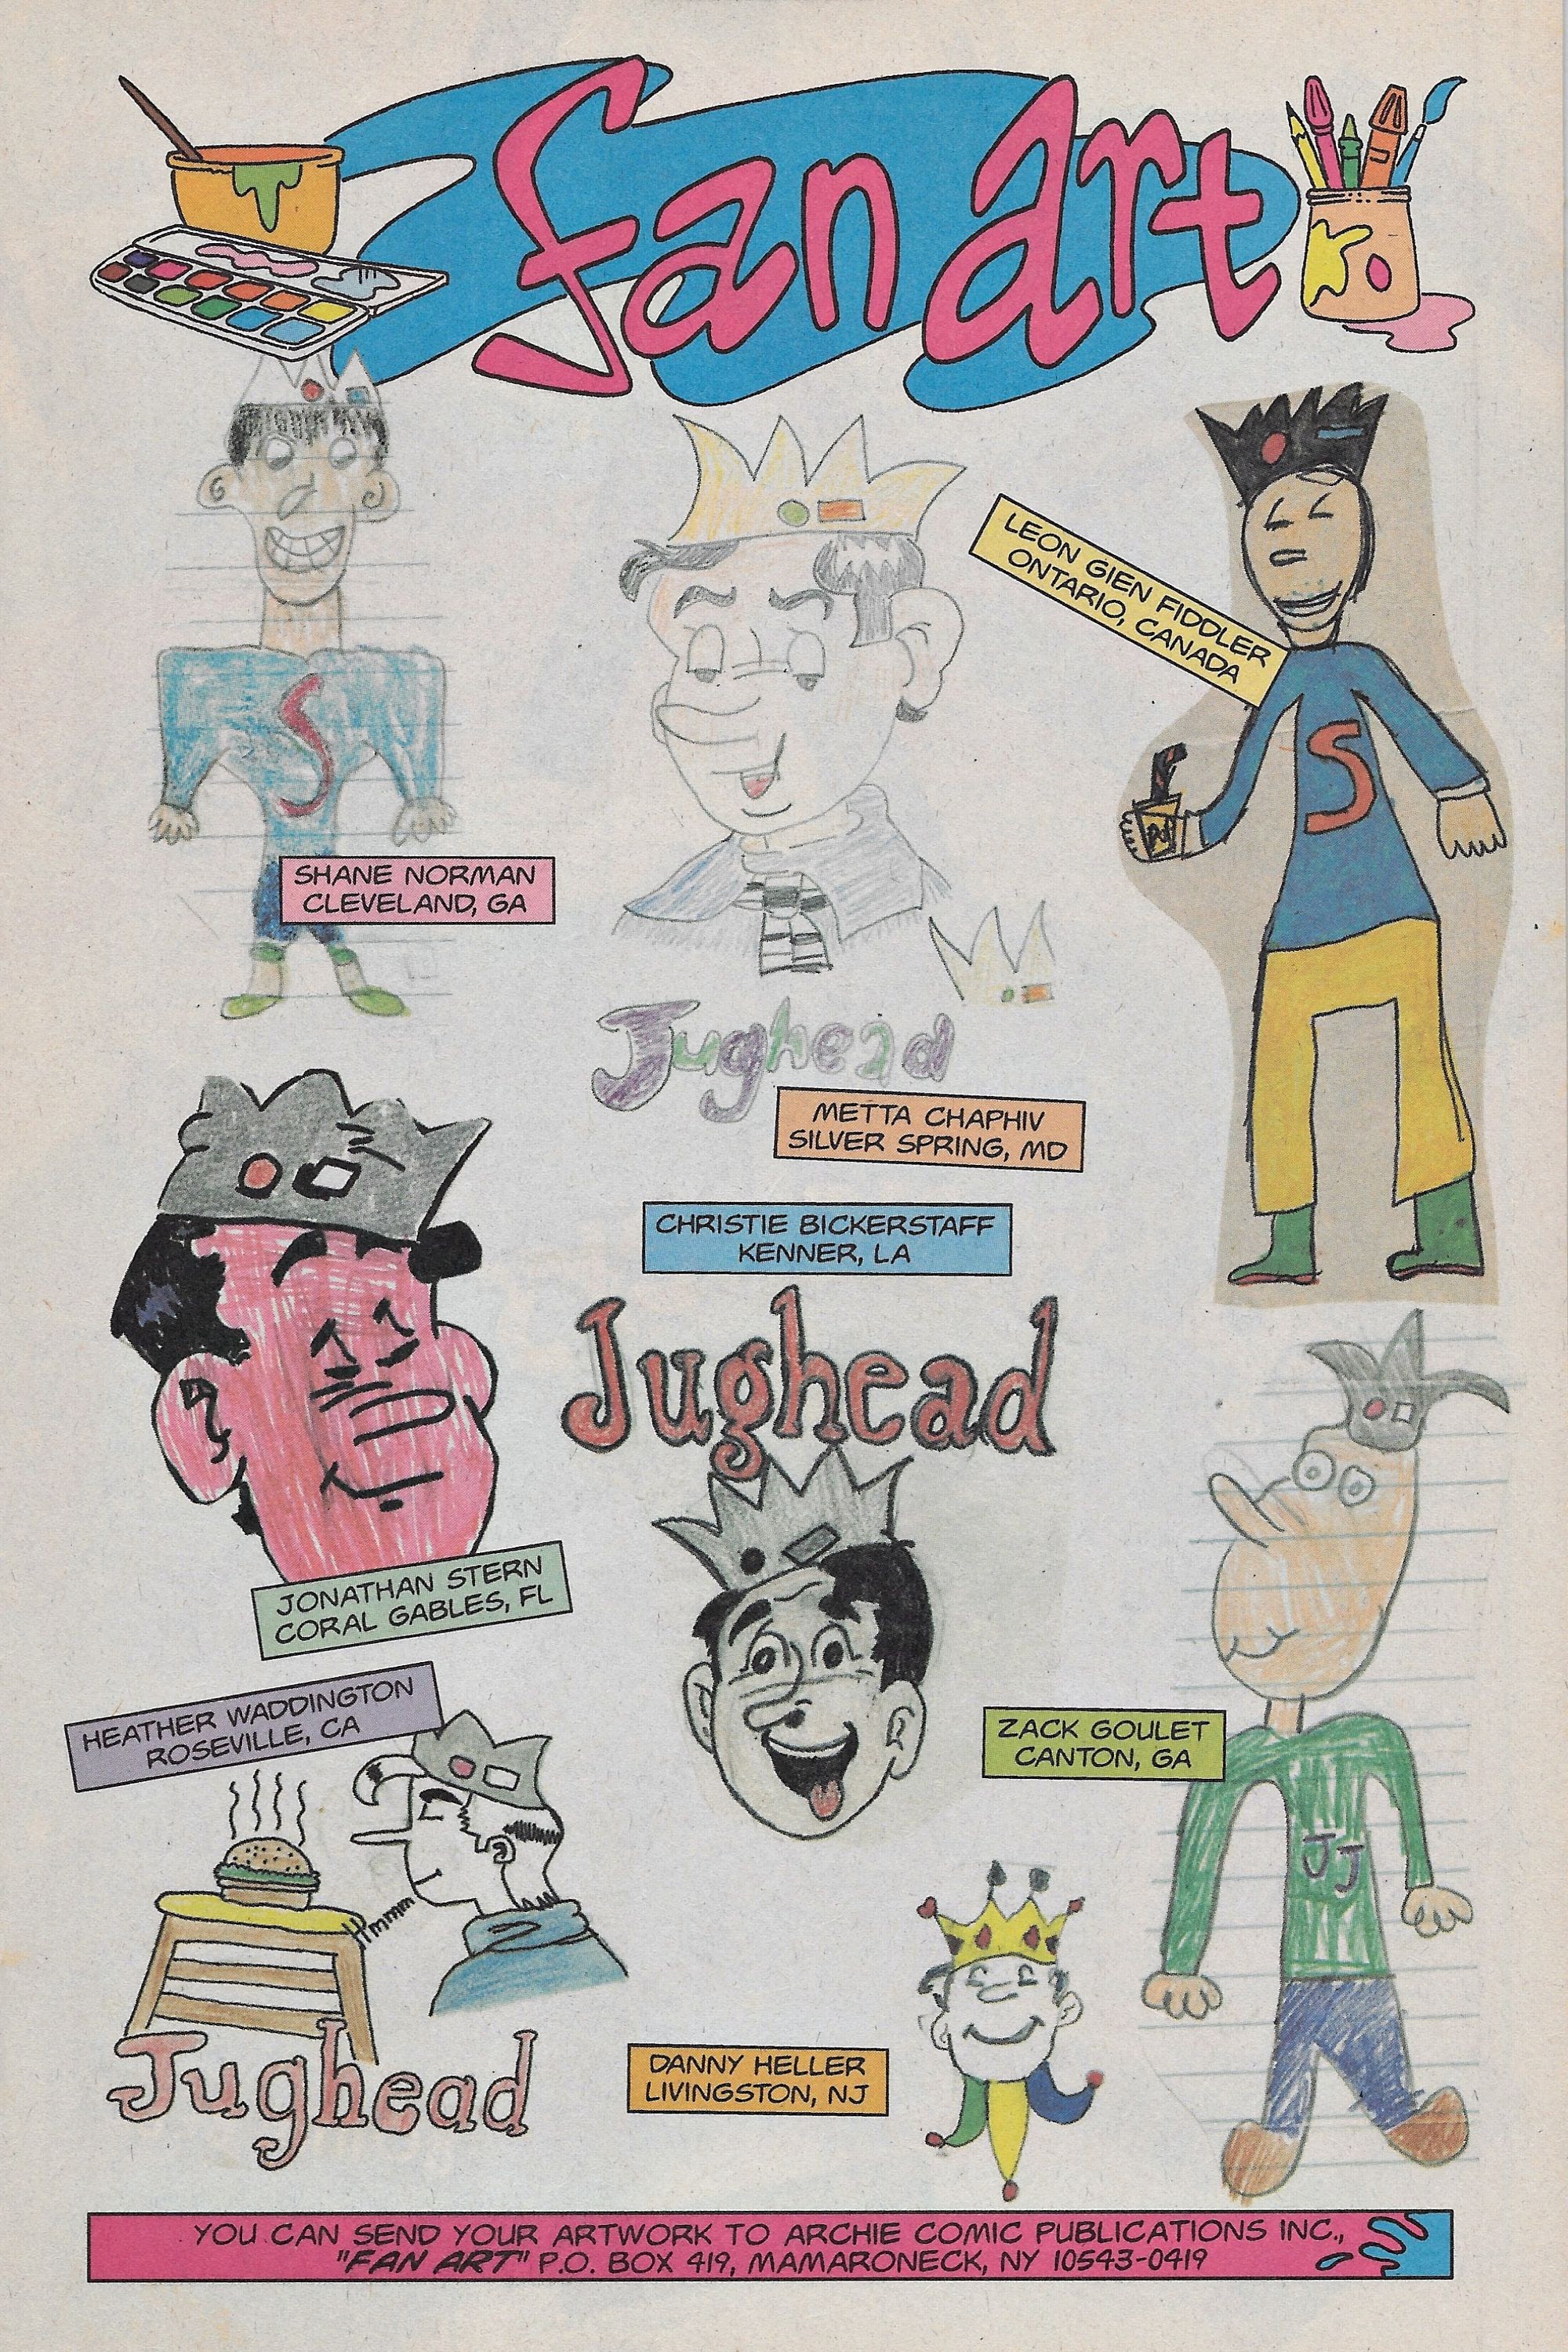 fan art
LEON GIEN FIDDLER
ONTARIO, CANADA
S
S
SHANE NORMAN
CLEVELAND, GA
Jughead
METTA CHAPHIV
SILVER SPRING, MD
CHRISTIE BICKERSTAFF
KENNER, LA
Jughead
JONATHAN STERN
CORAL GABLES, FL
HEATHER WADDINGTON
ROSEVILLE, CA
ZACK GOULET
CANTON, GA
JJ
Hmmm
Jughead
DANNY HELLER
LIVINGSTON, NJ
YOU CAN SEND YOUR ARTWORK TO ARCHIE COMIC PUBLICATIONS INC.,
"FAN ART" P.O. BOX 419, MAMARONECK, NY 10543-0419